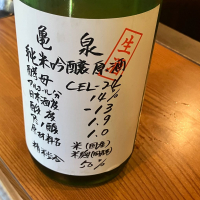 亀 泉
生
純米吟醸原酒
酵母 CEL-24
アルコール分 14%
日本酒度 13
酸度 1.9
酸 1.0
原材料名 米(国産)
米麹(国産米)
精米歩合 50%